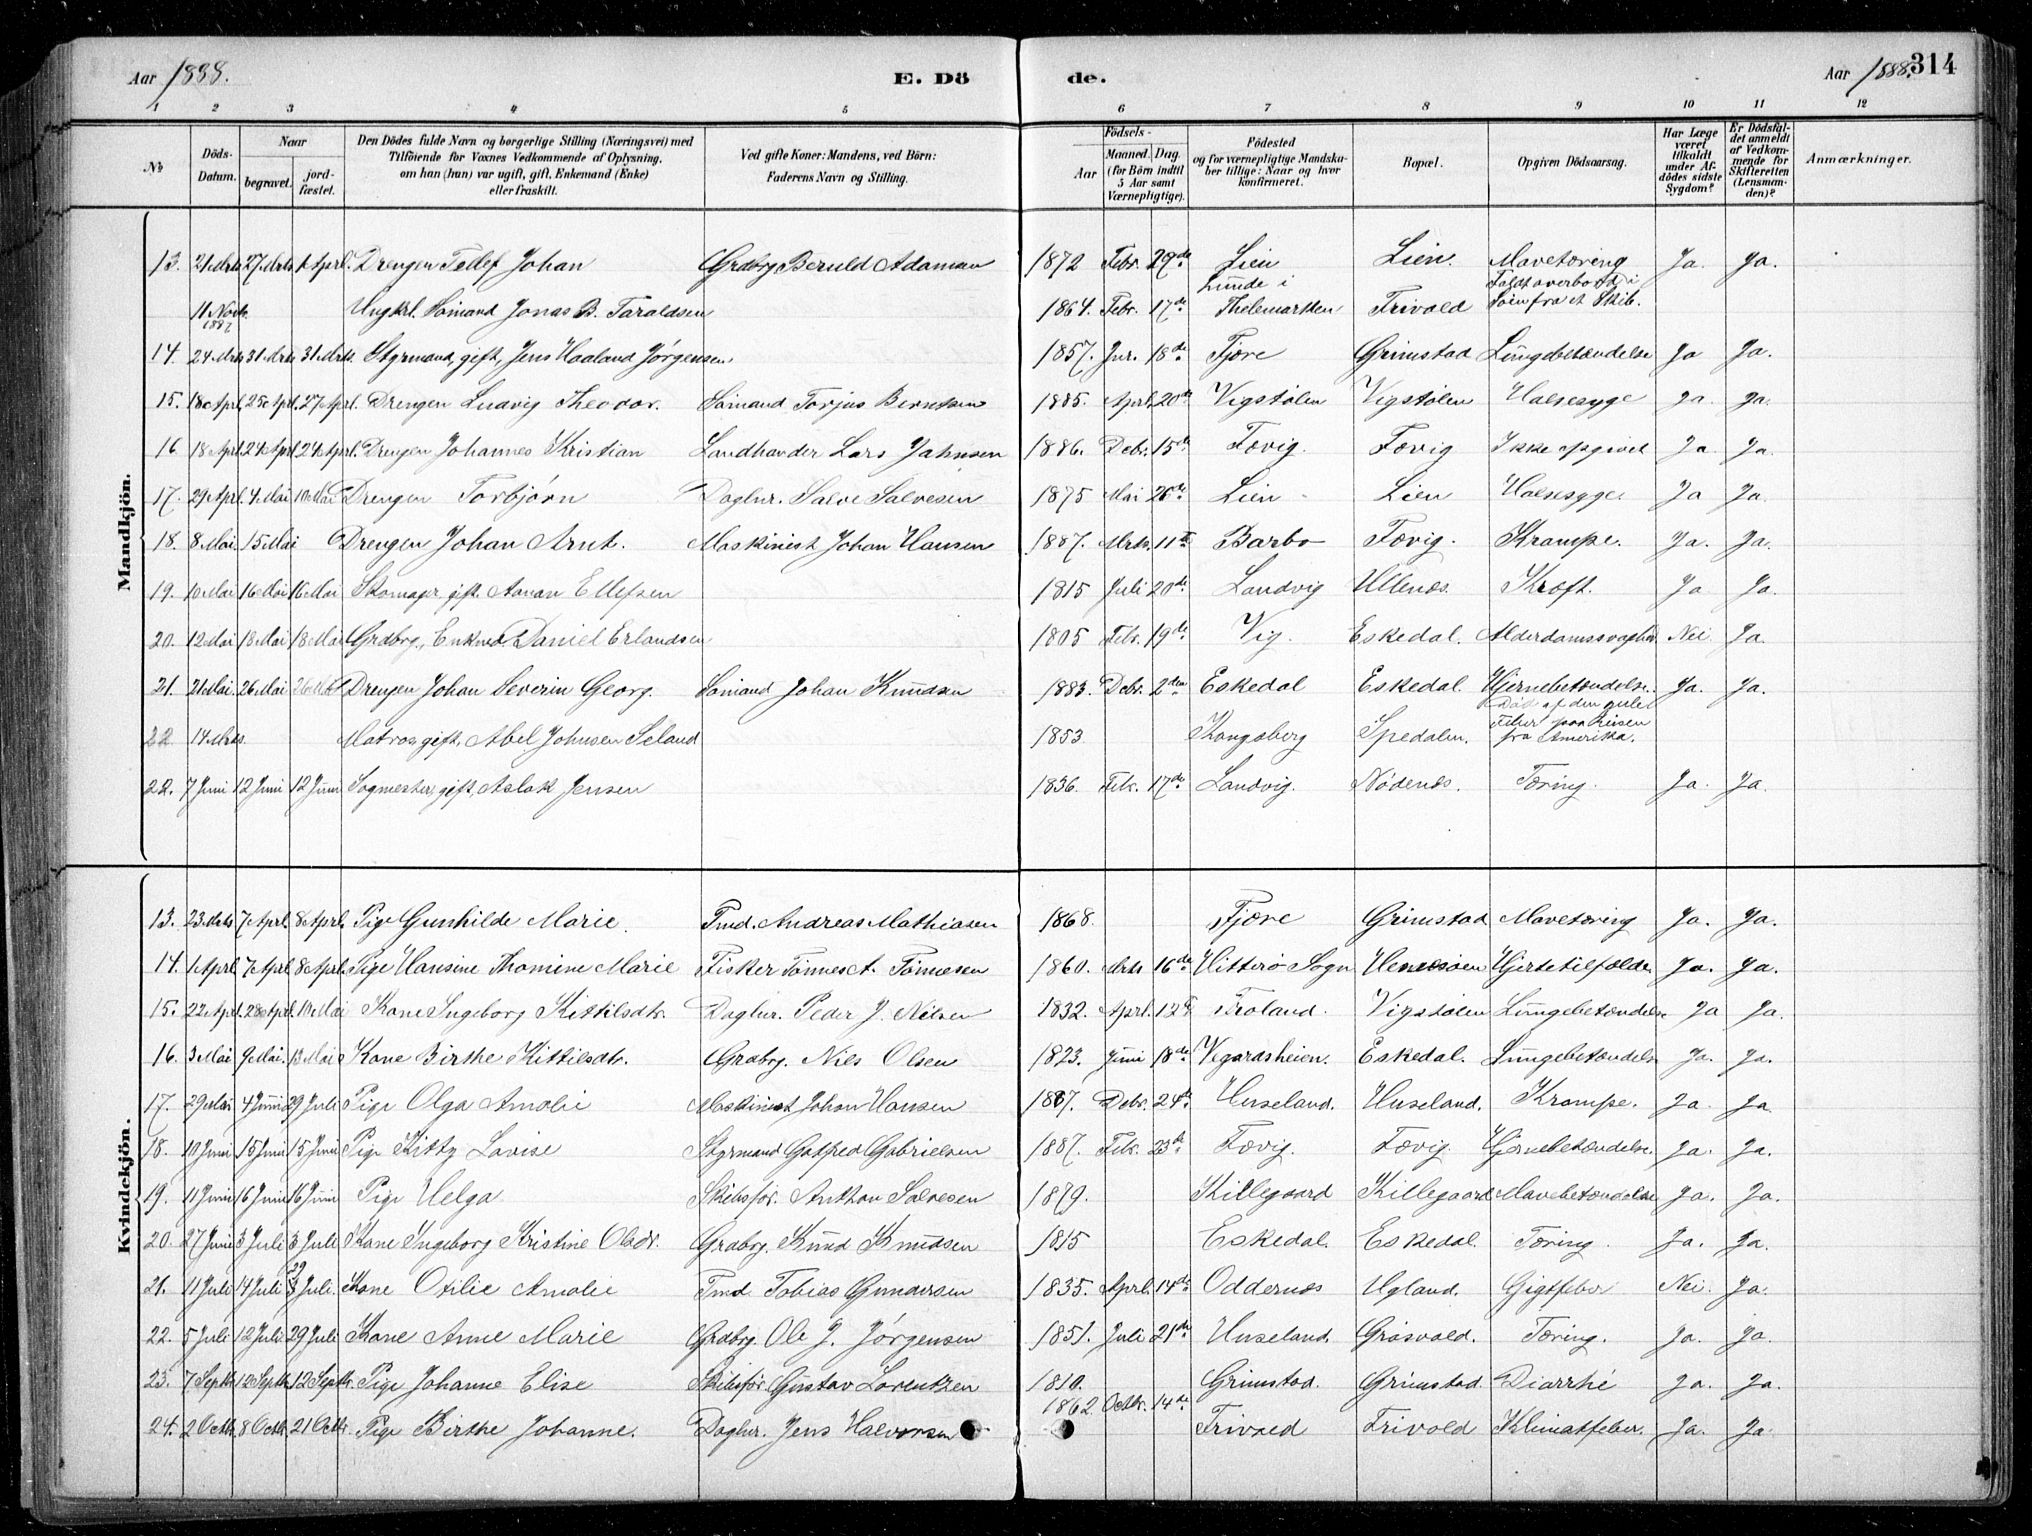 Aar 1888. E. Dö de. Aar 1888. 314
1 2 3 4 5 6 7 8 9 10 11 12
№ Döds-Datum. Naar begravet. jordfæstet. Den Dödes fulde Navn og borgerlige Stilling (Næringsvei) med Tilföiende for Voxnes Vedkommende af Oplysning, om han (hun) var ugift, gift, Enkemand (Enke) eller fraskilt. Ved gifte Koner: Mandens, ved Börn: Faderens Navn og Stilling. Födsels- Aar Maaned. Dag. (for Börn indtil 5 Aar samt Værnepligtige). Födested og for værnepligtige Mandskaber tillige: Naar og hvor konfirmeret. Bopæl. Opgiven Dödsaarsag. Har Læge været tilkaldt under Afdödes sidste Sygdom? Er Dödsfaldet anmeldt af Vedkommende for Skifteretten (Lensmanden)? Anmærkninger.
Mandkjön.
13. 21 Mrts 27 Mrts 1 Aprl. Drengen Tellef Johan Grdbrg Beruld Adaman 1872 Febr. 29de Lien Lien. Mavetæring Ja. Ja.
11 Novb. 1887 Ungkrl. Sömand Jonas B. Taraldsen 1864. Febr. 17de Lunde i Thelemarken Frivold Faldt overbord i Söen fra et Skib.
14. 24 Mrts 31 Mrts 31 Mrts. Styrmand, gift, Jens Haaland Jørgensen. 1857. Jnr. 18de Fjære Grimstad Lungebetændelse Ja Ja.
15. 18 Aprl. 25 Aprl. 27 Aprl. Drengen Ludvig Theodor. Sömand Torjus Berntsen 1885. Aprl. 20de Vigstølen Vigstølen Halssyge Ja. Ja.
16. 18 Aprl. 24 Aprl. 24 Aprl. Drengen Johannes Kristian Landhandler Lars Jahnsen 1886. Debr. 15de Fævig. Fævig Ikke opgivet Ja. Ja.
17. 29 Aprl. 4 Mai 10 Mai Drengen Torbjørn Daglnr. Salve Salvesen 1875 Mai 26de Lien Lien Halssyge Ja Ja.
18. 8 Mai. 15 Mai Drengen Johan Arnt. Maskinist Johan Hansen 1887. Mrts. 11te Barbo Fævig. Krampe. Ja. Ja.
19. 10 Mai 16 Mai 16 Mai Skomager, gift. Aanan Ellefsen 1815 Juli 20de Landvig Ullenæs. Kræft. Ja. Ja.
20. 12 Mai 18 Mai 18 Mai Grdbrg., Enkmd. Daniel Erlandsen 1805 Feb. 19de Vig. Eskedal. Alderdomssvaghed Nei Ja.
21. 21 Mai. 26 Mai 26 Mai Drengen Johan Severin Georg. Sömand Johan Knudsen 1883. Debr. 2den Eskedal Eskedal. Hjernebetændelse. Ja. Ja.
22 14 Mrts. Matros, gift, Abel Johnsen Seland 1853 Kongsberg Spedalen. Död af den gule Feber paa Reisen fra Amerika.
22. 7 Juni 12 Juni 12 Juni Sogmester, gift, Aslak Jensen 1836. Feb. 17de Landvig. Nödenæs. Tæring. Ja. Ja.
Kvindekjön.
13. 23 Mrts 7 Aprl. 8 Aprl. Pige Gunhilde Marie. Tmd. Andreas Mathiasen 1868. Fjære Grimstad Mavetæring Ja. Ja.
14. 1 Aprl 7 Aprl 8 Aprl. Pige Hansine Thomine Marie Fisker Tönnes A. Tönnesen 1860. Mrts 16de Hitterö Sogn Hjertetilfælde Ja. Ja.
15. 22 Aprl. 28 Aprl. 10 Mai Kone Ingeborg Kittilsdtr. Daglnr. Peder J. Nilsen 1832. Aprl. 12te Froland. Vigstølen Lungebetændelse Ja Ja.
16. 3 Mai 9 Mai. 13 Mai Kone Birthe Kittilsdtr. Grdbrg. Niels Olsen 1823. Juni 18de Vegardsheien. Eskedal. Lungebetændelse Ja. Ja.
17. 29 Mai 4 Juni 29 Juli Pige Olga Amalie Maskinist Johan Hansen 1887. Debr. 24de Huseland. Huseland. Krampe. Ja. Ja.
18. 10 Juni 15 Juni 15 Juni Pige Kitty Lovise Styrmand Gotfred Gabrielsen 1887. Feb. 23de Fævig. Fævig. Hjernebetændelse. Ja. Ja.
19. 11 Juni 16 Juni 16 Juni Pige Helga Skibsför. Anthon Salvesen 1879. Killegaard Killegaard Mavebetændelse Ja. Ja.
20. 27 Juni 3 Juli 3 Juli Kone Ingeborg Kristine Olsdr. Grdbrg. Knud Knudsen 1815 Eskedal. Eskedal. Tæring. Ja. Ja.
21. 11 Juli 14 Juli 29 Juli. Kone Otilie Amalie Tmd. Tobias Gundersen 1835. Aprl. 14de Oddernæs Ugland. Gigtfeber Nei. Ja.
22. 5 Juli 12 Juli 29 Juli Kone Anne Marie Grdbrg. Ole J. Jörgensen 1851. Juli 21de Huseland. Gråsvold. Tæring. Ja. Ja.
23. 7 Septb. 12 Septb. 12 Septb. Pige Johanne Elise Skibsför. Gustav Lorentzen 1810. Grimstad. Grimstad. Diarrhé Ja. Ja.
24. 2 Octb. 8 Octb. 21 Octb. Pige Birthe Johanne. Daglnr. Jens Halvorsen 1862. Octb. 14de Frivold Frivold Klimatfeber. Ja. Ja.